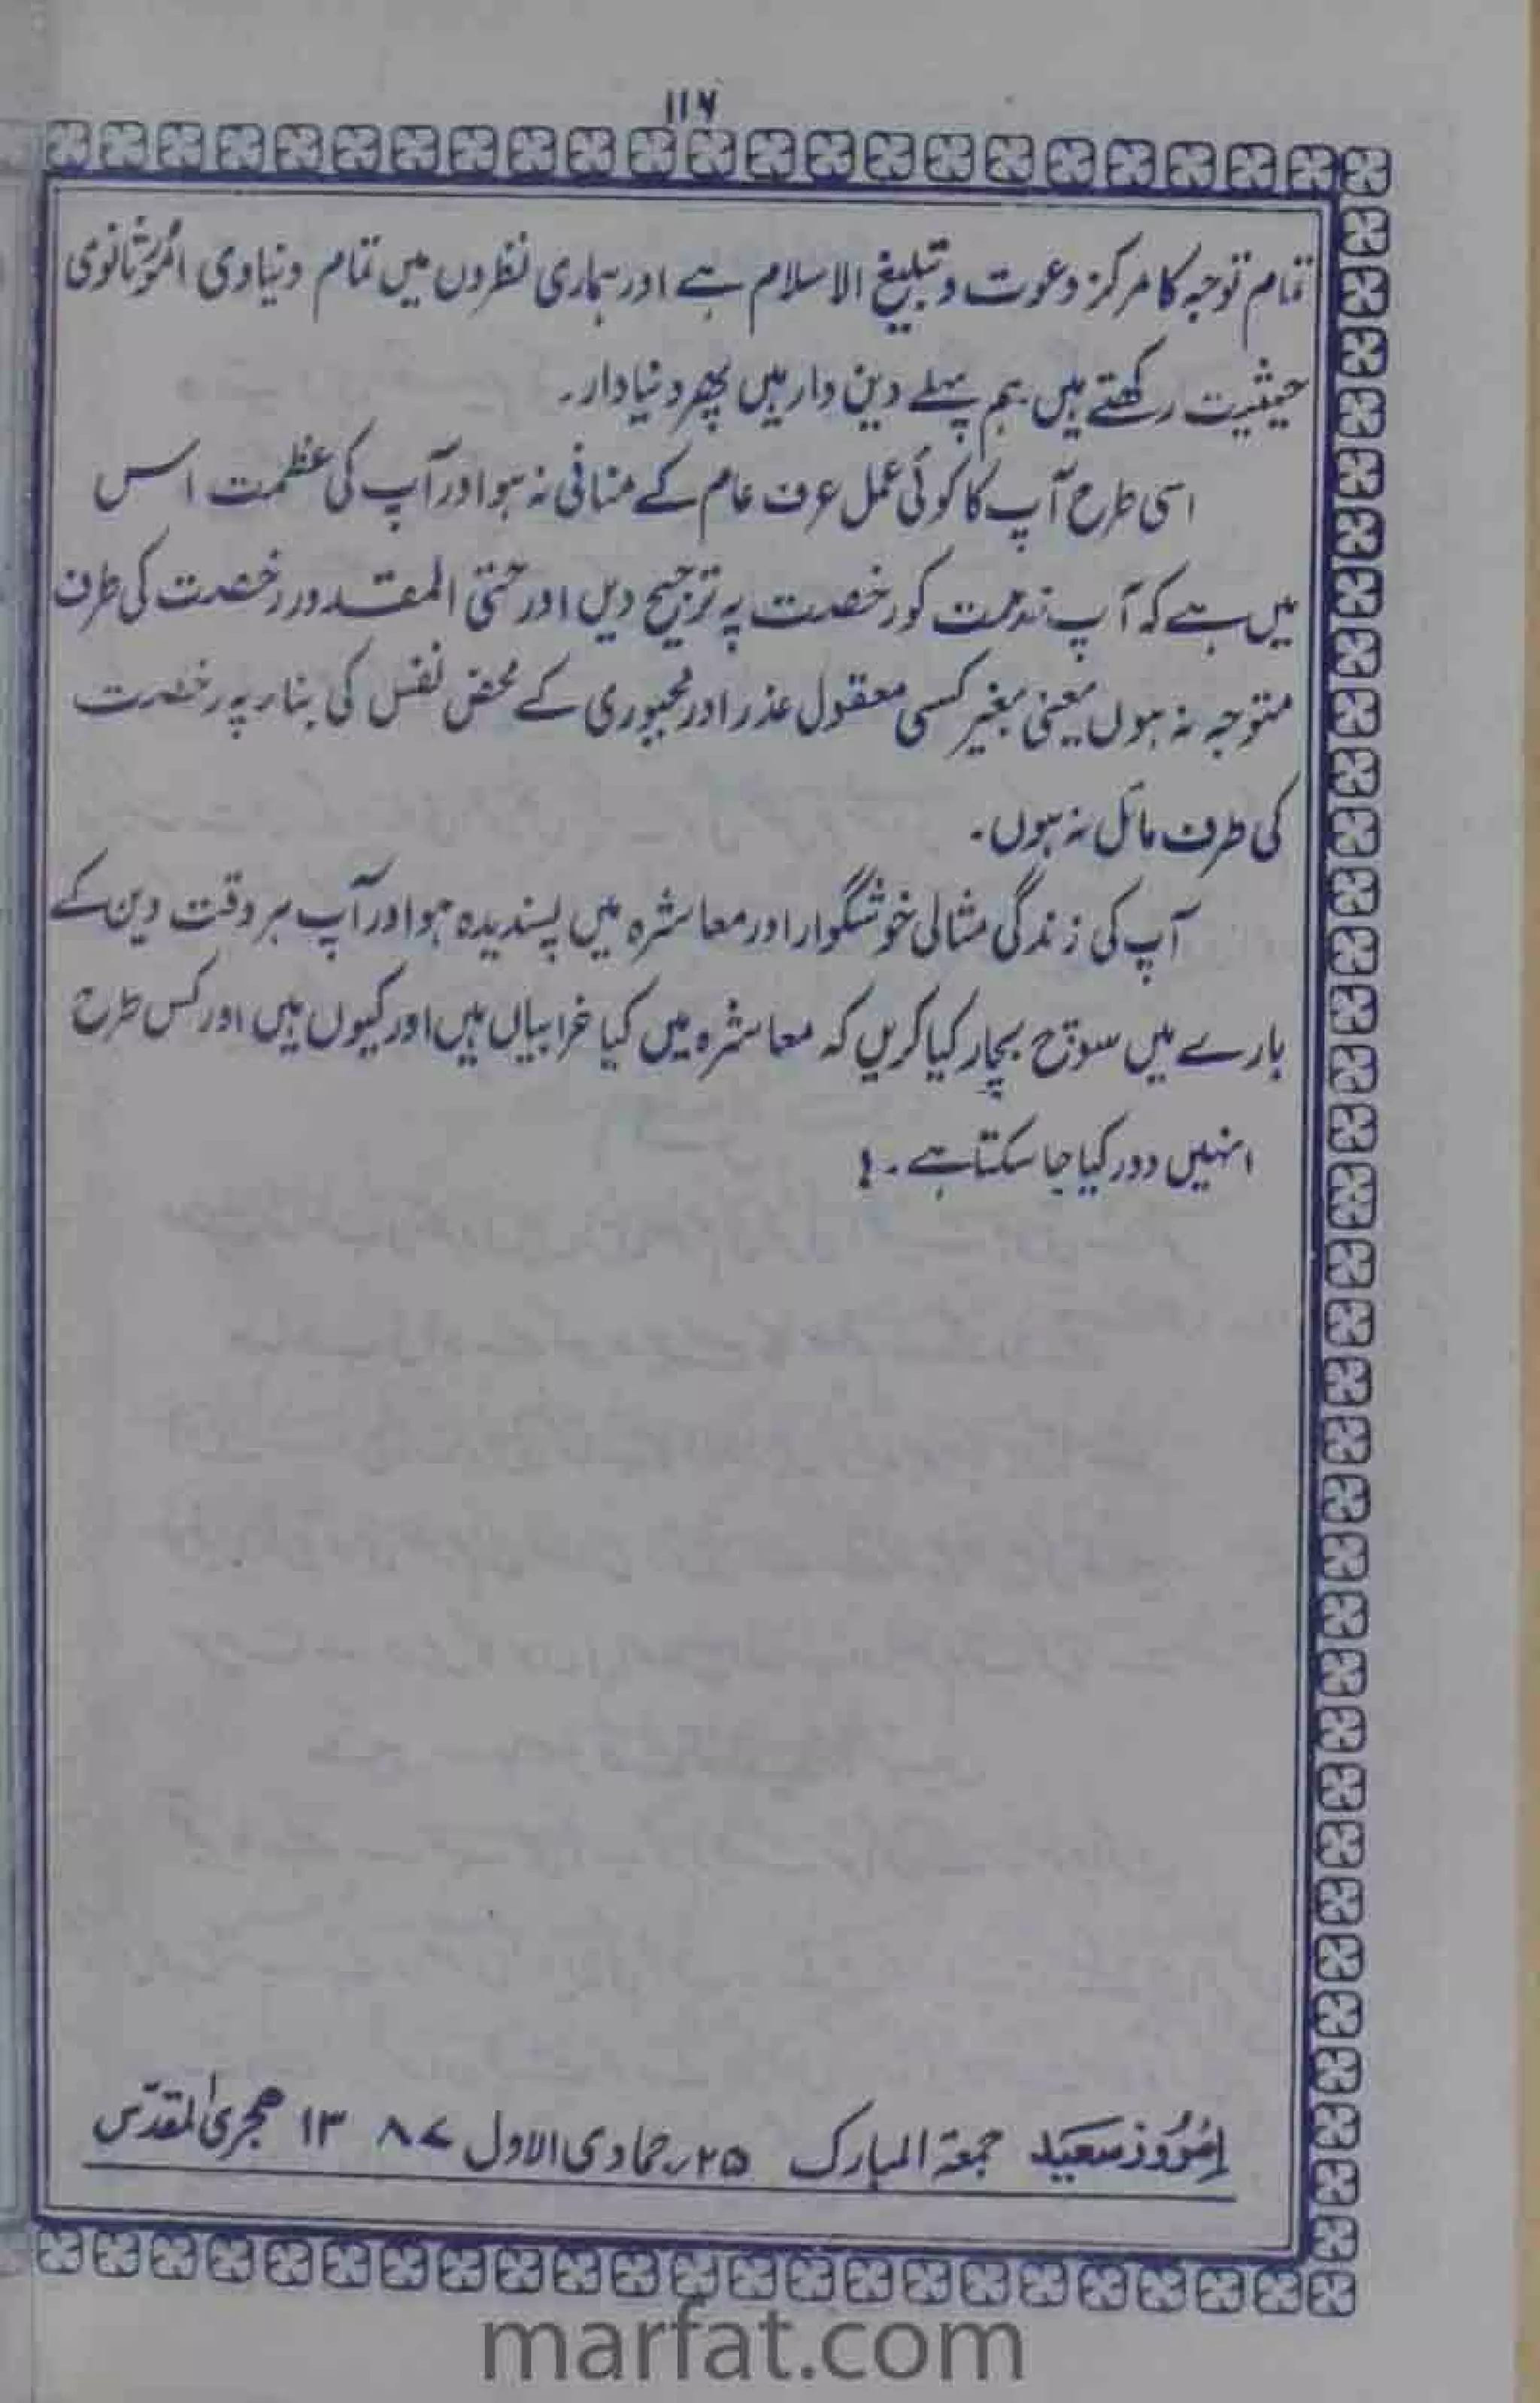 ۱۱۶
تمام توجہ کا مرکز دعوت و تبلیغ الاسلام ہے اور ہماری نظروں میں تمام دنیاوی امور ثانوی
حیثیت رکھتے ہیں ہم پہلے دین دار ہیں پھر دنیا دار۔
اسی طرح آپ کا کوئی عمل عرف عام کے منافی نہ ہو اور آپ کی عظمت اس
میں ہے کہ آپ کو رخصت پہ ترجیح دیں اور حتی المقدور رخصت کی طرف
متوجہ نہ ہوں یعنی بغیر کسی معقول عذر اور مجبوری کے محض نفس کی بنا پر رخصت
کی طرف مائل نہ ہوں۔
آپ کی زندگی مثالی خوشگوار اور معاشرہ میں پسندیدہ ہو اور آپ ہر وقت دین کے
بارے میں سوچ بچار کیا کریں کہ معاشرہ میں کیا خرابیاں ہیں اور کیوں ہیں اور کس طرح
انہیں دور کیا جا سکتا ہے۔!
امروز سعید جمعۃ المبارک ۲۵؍جمادی الاول ۱۳۸۷ ہجری المقدس
marfat.com